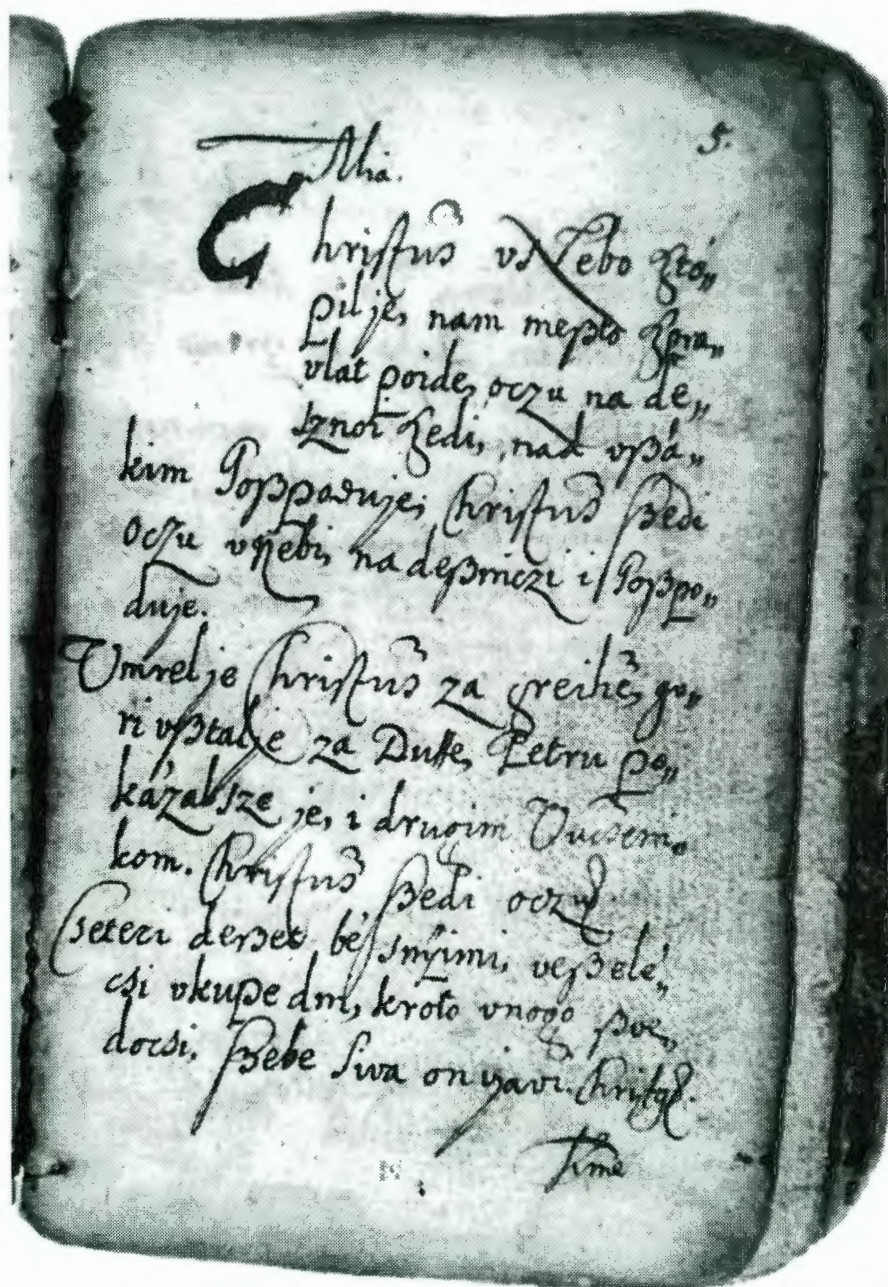 5.
Alia.
Christus vŝ Nebo ßtó„
pil je, nam meßto ßpra„
vlat poide, oczu na de„
sznoi ßedi, nad vßá„
kim Goßpoduje, Christus ßedi
oczu vNebi, na deßniczi i Goßpo„
duje.
Vmrel je Christus za greihe, go„
ri vßtal je za Dusse, Petru po„
kázal sze je, i drugim Vucseni„
kom. Christus ßedi oczu
Cseteri deßet bé snyimi, veßelé„
csi vkupe dni, kroto vnogo ßve„
docsi. ßebe siva on ijavi. Christꝰ.
Time